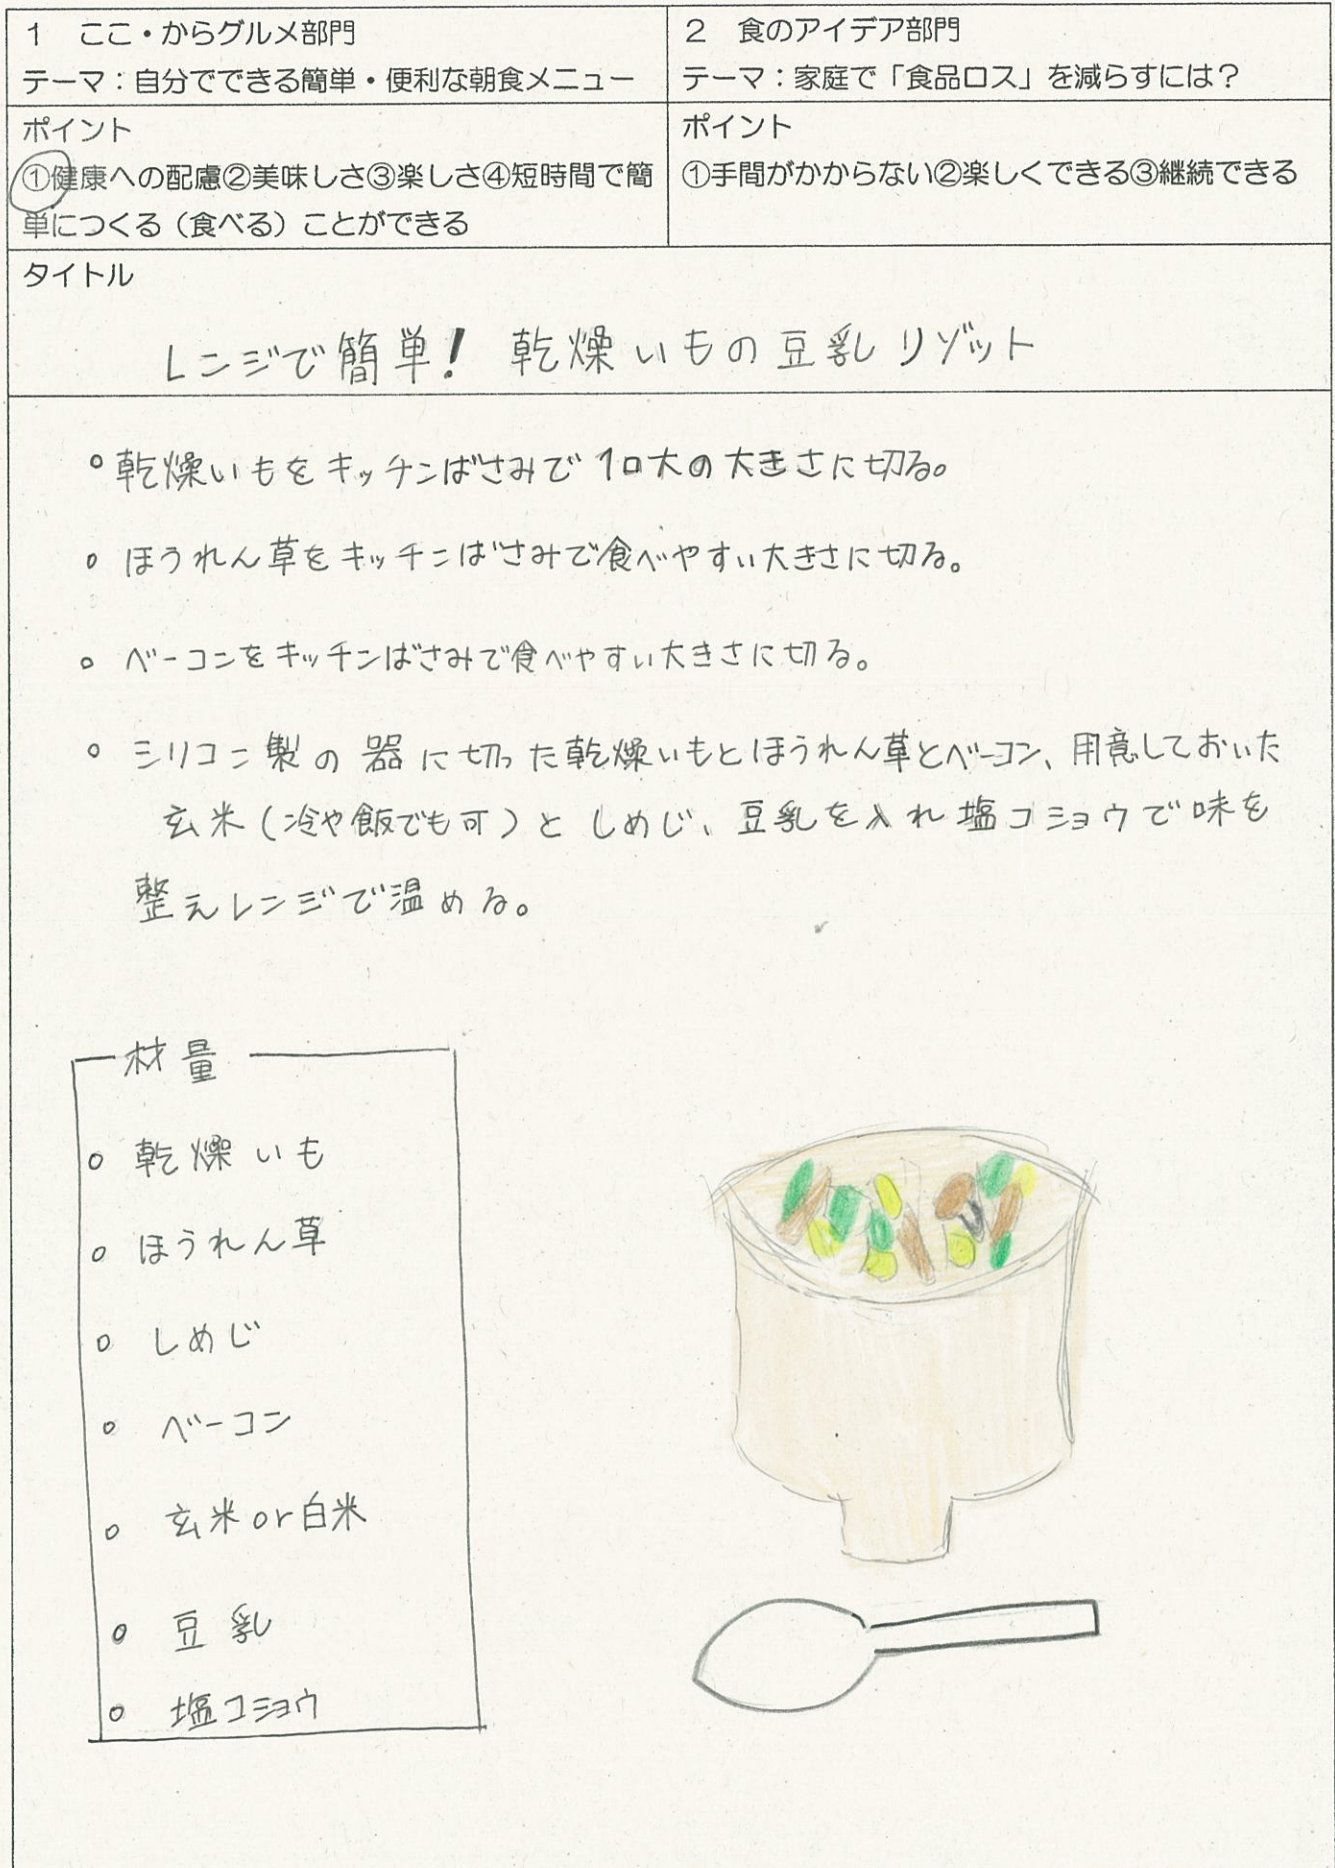 1　ここ・からグルメ部門
テーマ：自分でできる簡単・便利な朝食メニュー
2　食のアイデア部門
テーマ：家庭で「食品ロス」を減らすには？
ポイント
①健康への配慮②美味しさ③楽しさ④短時間で簡
単につくる（食べる）ことができる
ポイント
①手間がかからない②楽しくできる③継続できる
タイトル
レンジで簡単！ 乾燥いもの豆乳リゾット
○ 乾燥いもをキッチンばさみで1口大の大きさに切る。
○ ほうれん草をキッチンばさみで食べやすい大きさに切る。
○ ベーコンをキッチンばさみで食べやすい大きさに切る。
○ シリコン製の器に切った乾燥いもとほうれん草とベーコン、用意しておいた
玄米(冷や飯でも可)としめじ、豆乳を入れ塩コショウで味を
整えレンジで温める。
材量
○ 乾燥いも
○ ほうれん草
○ しめじ
○ ベーコン
○ 玄米or白米
○ 豆乳
○ 塩コショウ